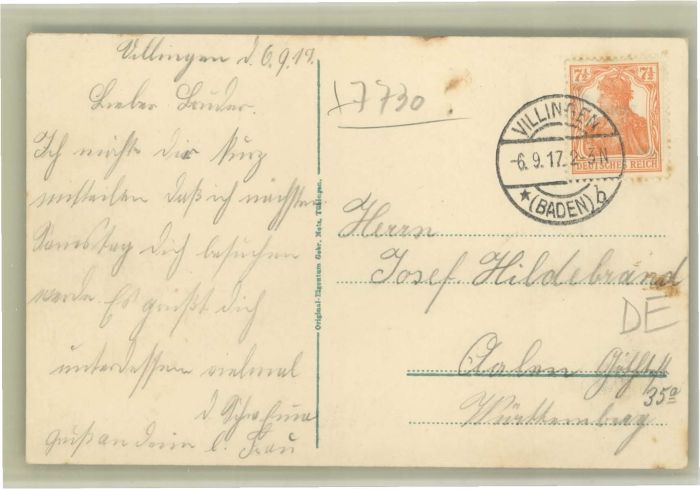 Villingen d. 6.9.17.
Lieber Bruder.
Ich möchte dir kurz
mitteilen daß ich nächsten
Samstag dich besuchen
werde. Es grüßt dich
unterdessen vielmal
d. Schw. Anna
Gruß an deine l. Frau
Original-Eigentum Gebr. Metz, Tübingen.
17730
7½ 7½
DEUTSCHES REICH
VILLINGEN
-6.9.17.2-3N
★(BADEN) b
Herrn
Josef Hildebrand
DE
Aalen
35a
Württemberg